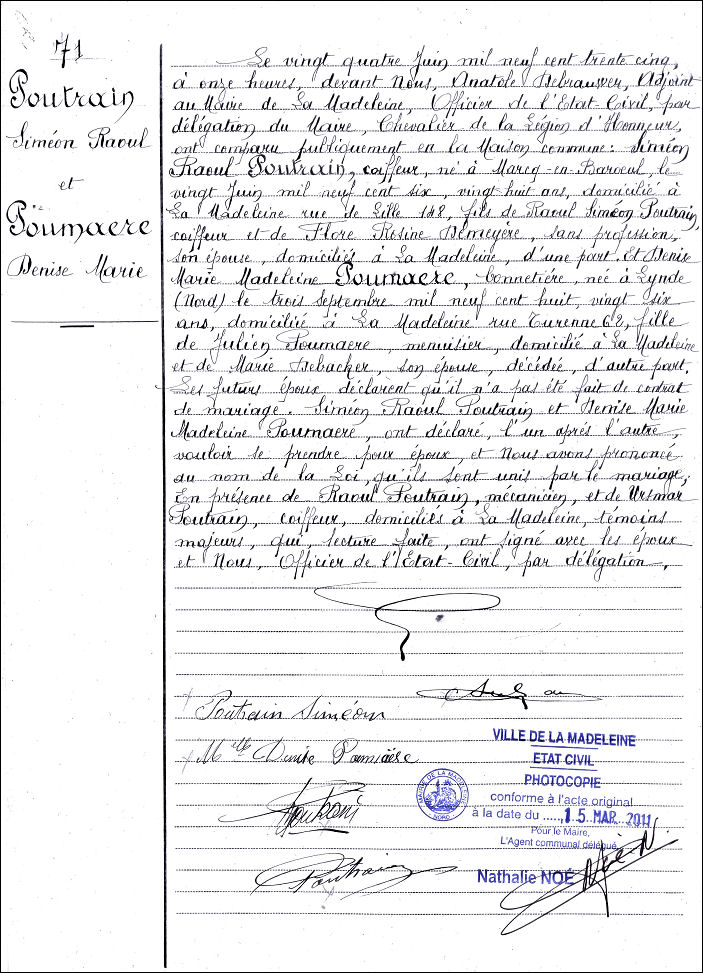 71
Poutrain
Siméon Raoul
et
Poumaere
Denise Marie
Le vingt quatre Juin mil neuf cent trente cinq,
à onze heures, devant Nous, Anatole Debrauwer, Adjoint
au Maire de La Madeleine, Officier de l'Etat Civil, par
délégation du Maire, Chevalier de la Légion d'Honneur,
ont comparu publiquement en la Maison commune: Siméon
Raoul Poutrain, coiffeur, né à Marcq-en-Baroeul, le
vingt Juin mil neuf cent six, vingt-huit ans, domicilié à
La Madeleine rue de Lille 148, fils de Raoul Siméon Poutrain,
coiffeur et de Flore Rosine Demeyère, sans profession,
son épouse, domiciliés à La Madeleine, d'une part. Et Denise
Marie Madeleine Poumaere, bonnetière, née à Lynde
(Nord) le trois septembre mil neuf cent huit, vingt six
ans, domiciliée à La Madeleine rue Turenne 62, fille
de Julien Poumaere, menuisier, domicilié à La Madeleine
et de Marie Debacker, son épouse, décédée, d'autre part.
Les futurs époux déclarent qu'il n'a pas été fait de contrat
de mariage. Siméon Raoul Poutrain et Denise Marie
Madeleine Poumaere, ont déclaré, l'un après l'autre,
vouloir se prendre pour époux, et Nous avons prononcé
au nom de la Loi, qu'ils sont unis par le mariage,
En présence de Raoul Poutrain, mécanicien, et de Ursmar
Poutrain, coiffeur, domiciliés à La Madeleine, témoins
majeurs, qui, lecture faite, ont signé avec les époux
et Nous, Officier de l'Etat-Civil, par délégation.
Poutrain Siméon
Melle Denise Poumaere
Poutrain
VILLE DE LA MADELEINE
ETAT CIVIL
PHOTOCOPIE
conforme à l'acte original
à la date du ....., 15 MAR. 2011
Pour le Maire,
L'Agent communal délégué,
Nathalie NOÉ
MAIRIE DE LA MADELEINE
NORD